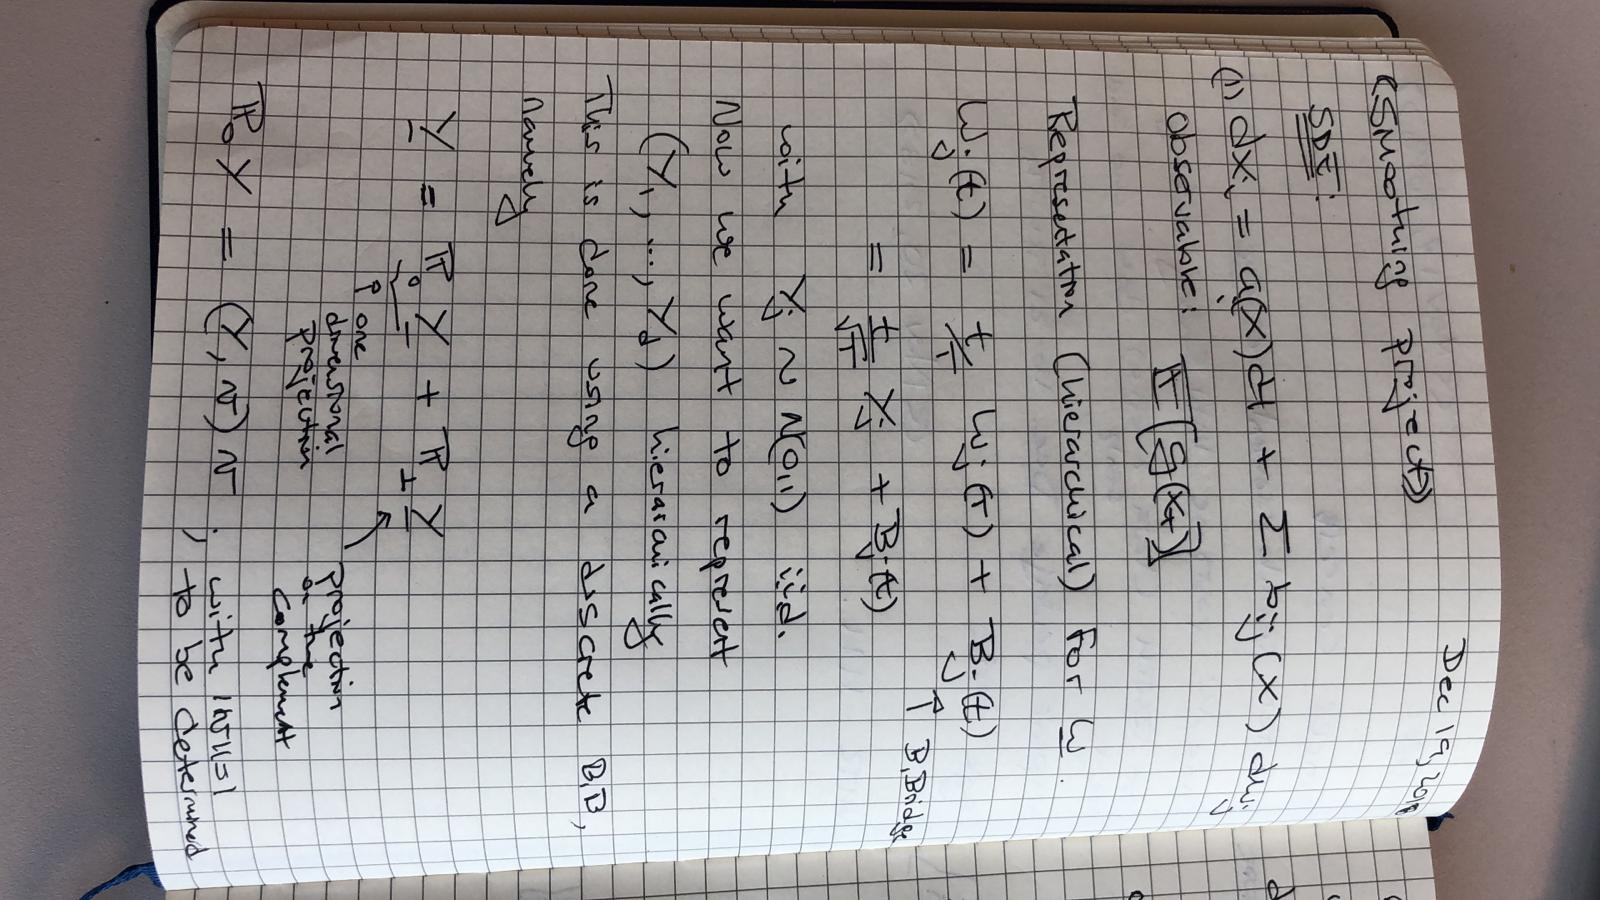 Dec 19, 2018
(Smoothing project)
SDE:
(1) dX_i = a_i(X)dt + Σ b_ij(X) dW_j
observable: E[g(X_T)]
Represetation (hierarchical) For W.
W_j(t) = t/T W_j(T) + B_j(t)
= t/√T Y_j + B_j(t)
↑ B.Bridge
with Y_j ~ N(0,1) iid.
Now we want to represent
(Y_1, ..., Y_d) hierarchically
This is done using a discrete B.B,
namely
Y = P_0 Y + P_⊥ Y
one
dimensional
projection
projection
on the
complement
P_0 Y = (Y, v) v ; with |v|=1
to be determined